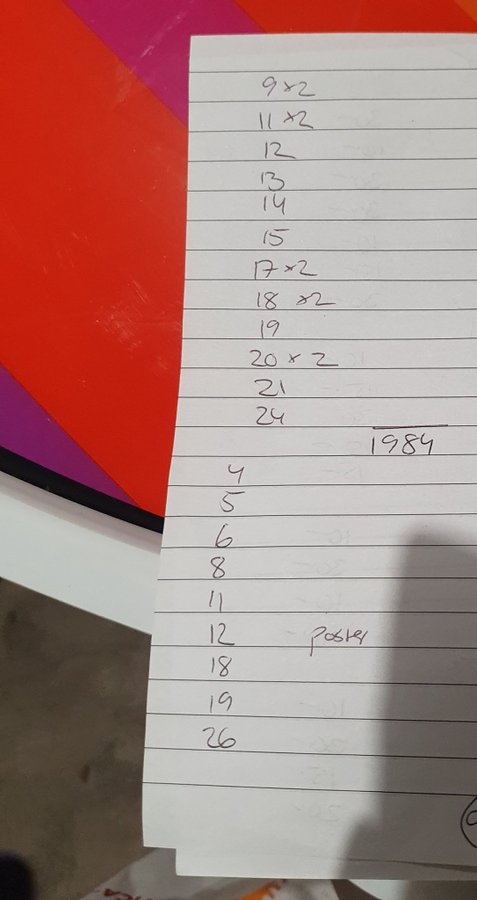 9 x2
11 x2
12
13
14
15
17 x2
18 x2
19
20 x 2
21
24
1984
4
5
6
8
11
12 poster
18
19
26